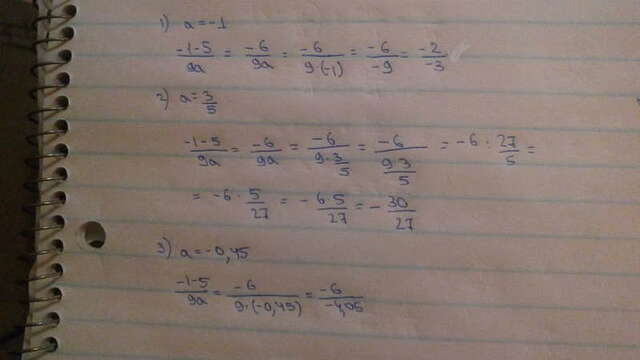 1) a=-1
\frac{-1-5}{9a} = \frac{-6}{9a} = \frac{-6}{9·(-1)} = \frac{-6}{-9} = \frac{-2}{-3}
2) a=\frac{3}{5}
\frac{-1-5}{9a} = \frac{-6}{9a} = \frac{-6}{9·\frac{3}{5}} = \frac{-6}{\frac{9·3}{5}} = -6 : \frac{27}{5} =
= -6 · \frac{5}{27} = -\frac{6·5}{27} = -\frac{30}{27}
3) a=-0,45
\frac{-1-5}{9a} = \frac{-6}{9·(-0,45)} = \frac{-6}{-4,05}